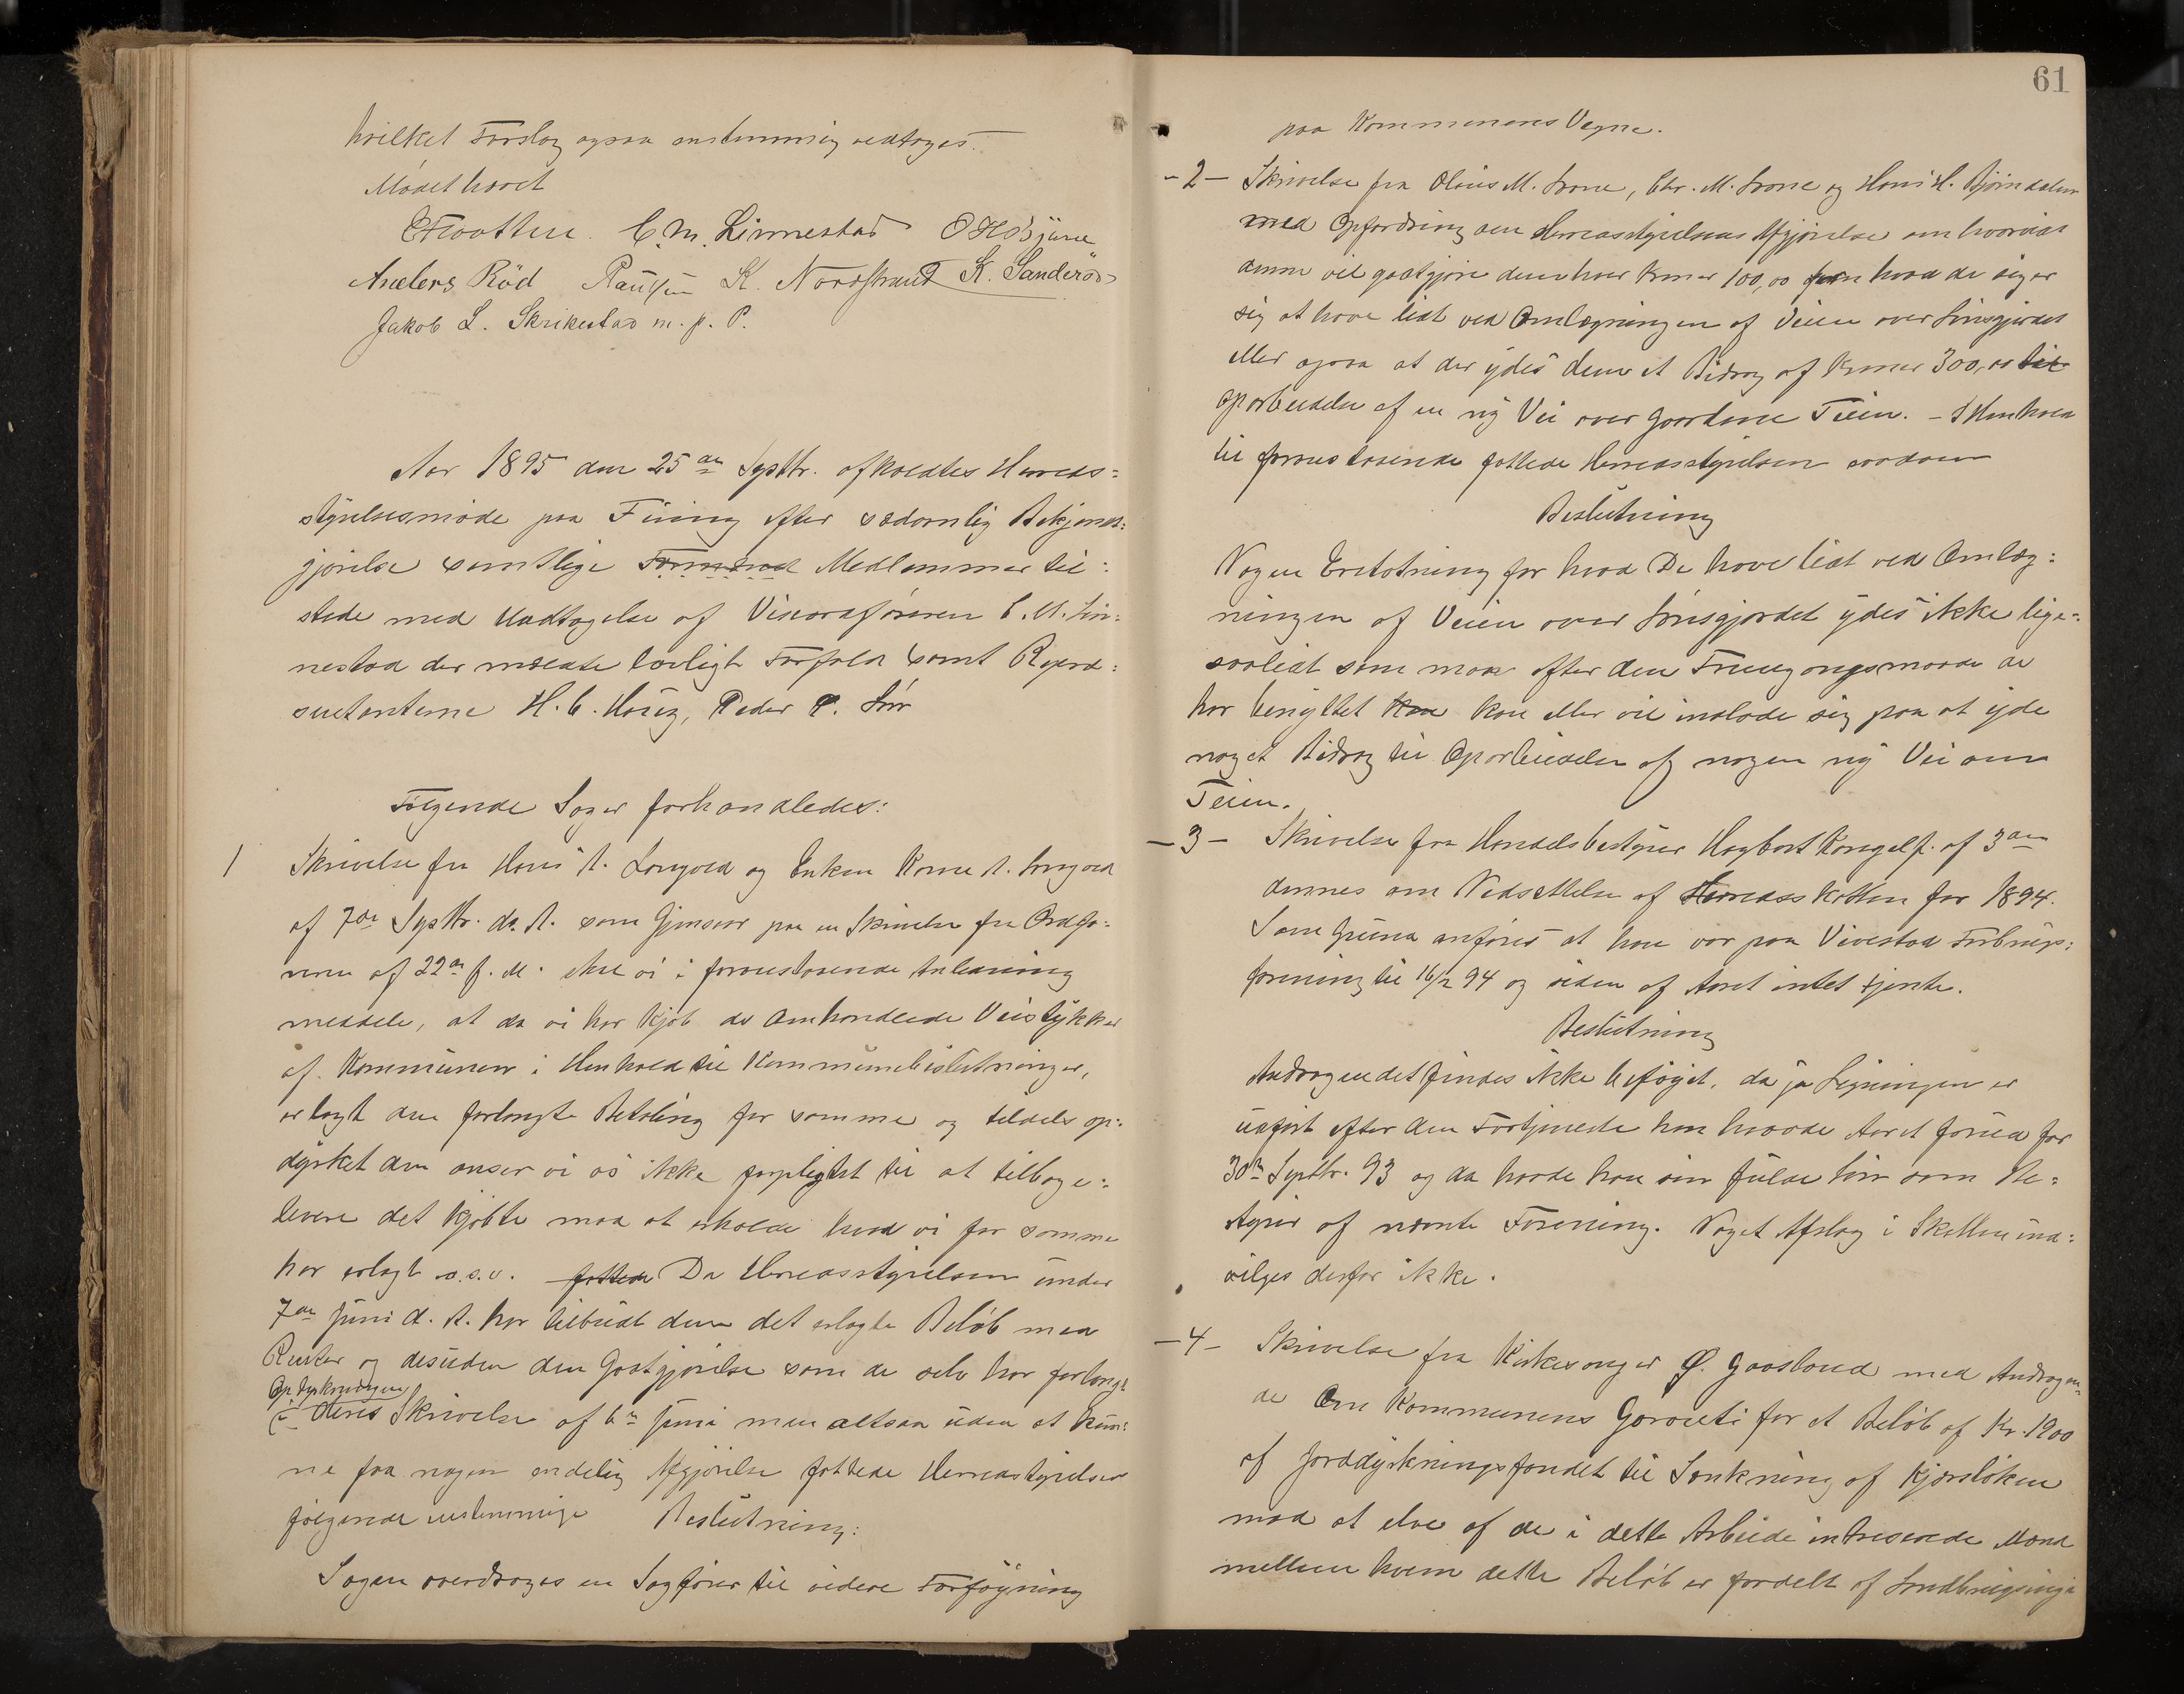 hvilket Forslag ogsaa enstemmig vedtoges.
Mødet hævet
C. M. Linnestad
Anders Röd Paulsen K. Nordstrand K. Sanderöd
Jakob L. Skrikestad m. p. P.
Aar 1895 den 25de Septbr. afholdtes Herreds=
styrelsesmöde paa Fining efter sædvanlig Bekjendt=
gjörelse samtlige Formænd Medlemmer til=
stede med Undtagelse af Viceordföreren C. M. Lin=
nestad der meldte lovligt Forfald samt Repræ=
sentanterne H. C. Houg, Peder P. Lör
Fölgende Sager forhandledes:
1 Skrivelse fra Hans A. Langved og Enken Karen A. Langved
af 7de Septbr. d. A. som Gjensvar paa en Skrivelse fra Ordfö=
reren af 22de f. M. skal vi i foranstaaende Anledning
meddele, at da vi har kjöbt de omhandlede Veistykker
af Kommunen i Henhold til Kommunebeslutninger,
erlagt den forlangte Betaling for samme og tildels op=
dyrket dem anser vi os ikke forpligtet til at tilbage=
levere det kjöbte mod at erholde hvad vi for samme
har erlagt o.s.v. fattede Da Herredsstyrelsen under
7de Juni d. A. har tilbudt dem det erlagte Belöb med
Renter og desuden den Godtgjörelse som de selv har forlangt
Opdyrkningen
i deres Skrivelse af 6te Juni men altsaa uden at kun=
ne faa nogen endelig Afgjörelse fattede Herredsstyrelsen
fölgende enstemmige Beslutning:
Sagen overdrages en Sagförer til videre Forföining
61
paa Kommunens Vegne.
-2- Skrivelse fra Olaus M. Trone, Chr. M. Trone og Hans H. Björndalen
med Opfordring om Herredsstyrelsens Afgjörelse om hvorvidt
denne vil godtgjöre dem hver Kroner 100,00 for hvad de siger
sig at have lidt ved Omlægningen af Veien over Linsgjærdet
eller ogsaa at der ydes dem et Bidrag af Kroner 300,00 til
Oparbeidelse af en ny Vei over Gaardene Teien. - I Henhold
til foranstaaende fattede Herredsstyrelsen saadan
Beslutning
Nogen Erstatning for hvad De have lidt ved Omlæg=
ningen af Veien over Linsgjærdet ydes ikke lige=
saalidt som man efter den Fremgangsmaade de
har benyttet kan kan eller vil indlade sig paa at yde
noget Bidrag til Oparbeidelse af nogen ny Vei om
Teien.
-3- Skrivelse fra Handelsbestyrer Hagbart Kongelf. af 3die
dennes om Nedsættelse af Herredsskatten for 1894.
Som Grund anföres at han var paa Vivestad Forbrugs=
forening til 16/2 94 og siden af Aaret intet tjente.
Beslutning
Andragendet findes ikke beföiet, da jo Ligningen er
udfört efter den Fortjeneste han havde Aaret forud for
30te Septbr. 93 og da havde han sin fulde Lön som Be=
styrer af nævnte Forening. Noget Afslag i Skatten ind=
vilges derfor ikke.
-4- Skrivelse fra Kirkesanger Ø. Gaasland med Andragen=
de om Kommunens Garanti for et Belöb af Kr. 1900
af Jorddyrkningsfondet til Sænkning af Kjærslöken
mod at elve af de i dette Arbeide intreserede Mænd
mellem hvem dette Belöb er fordelt af Landbrugsinge